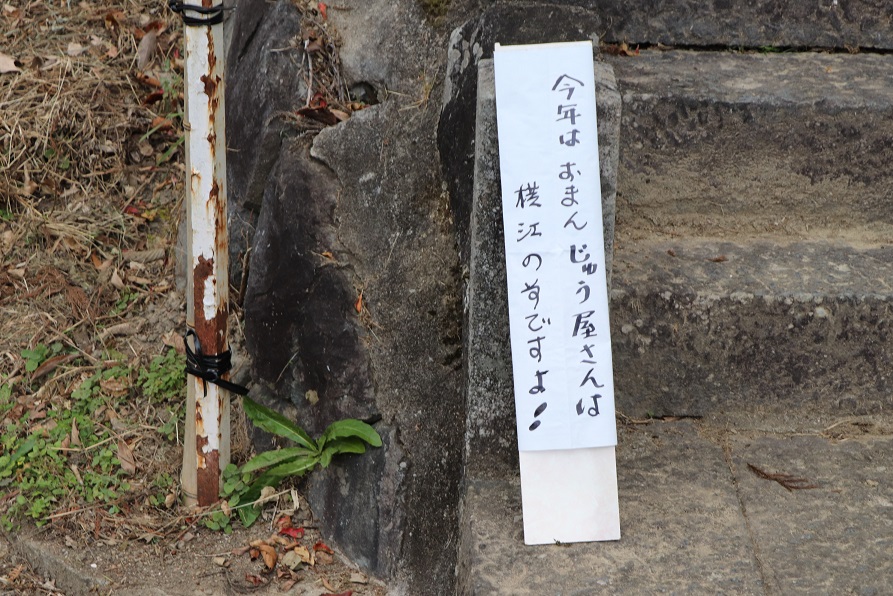 今年はおまんじゅう屋さんは
横江のすですよ!